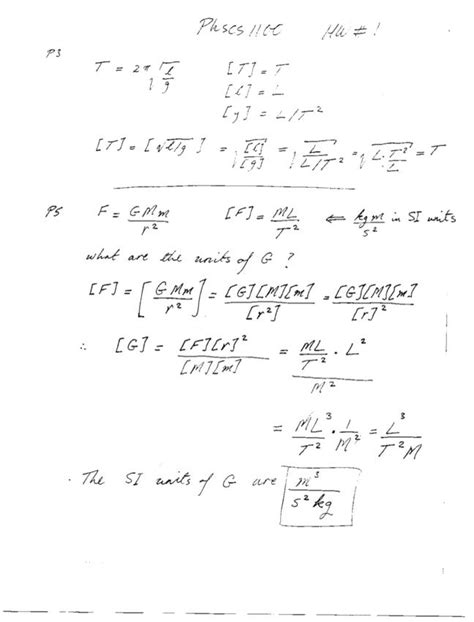 Phscs 1100 HW # 1
P3
T = 2π √(l/g) [T] = T
[l] = L
[g] = L/T²
[T] = [√l/g] = √([l]/[g]) = √(L/(L/T²)) = √(L·T²/L) = T
P5 F = GMm/r² [F] = ML/T² ⇐ kg m/s² in SI units
what are the units of G ?
[F] = [GMm/r²] = [G][M][m]/[r²] = [G][M][m]/[r]²
∴ [G] = [F][r]²/[M][m] = (ML/T² · L²)/M²
= ML³/T² · 1/M² = L³/T²M
. The SI units of G are m³/s² kg